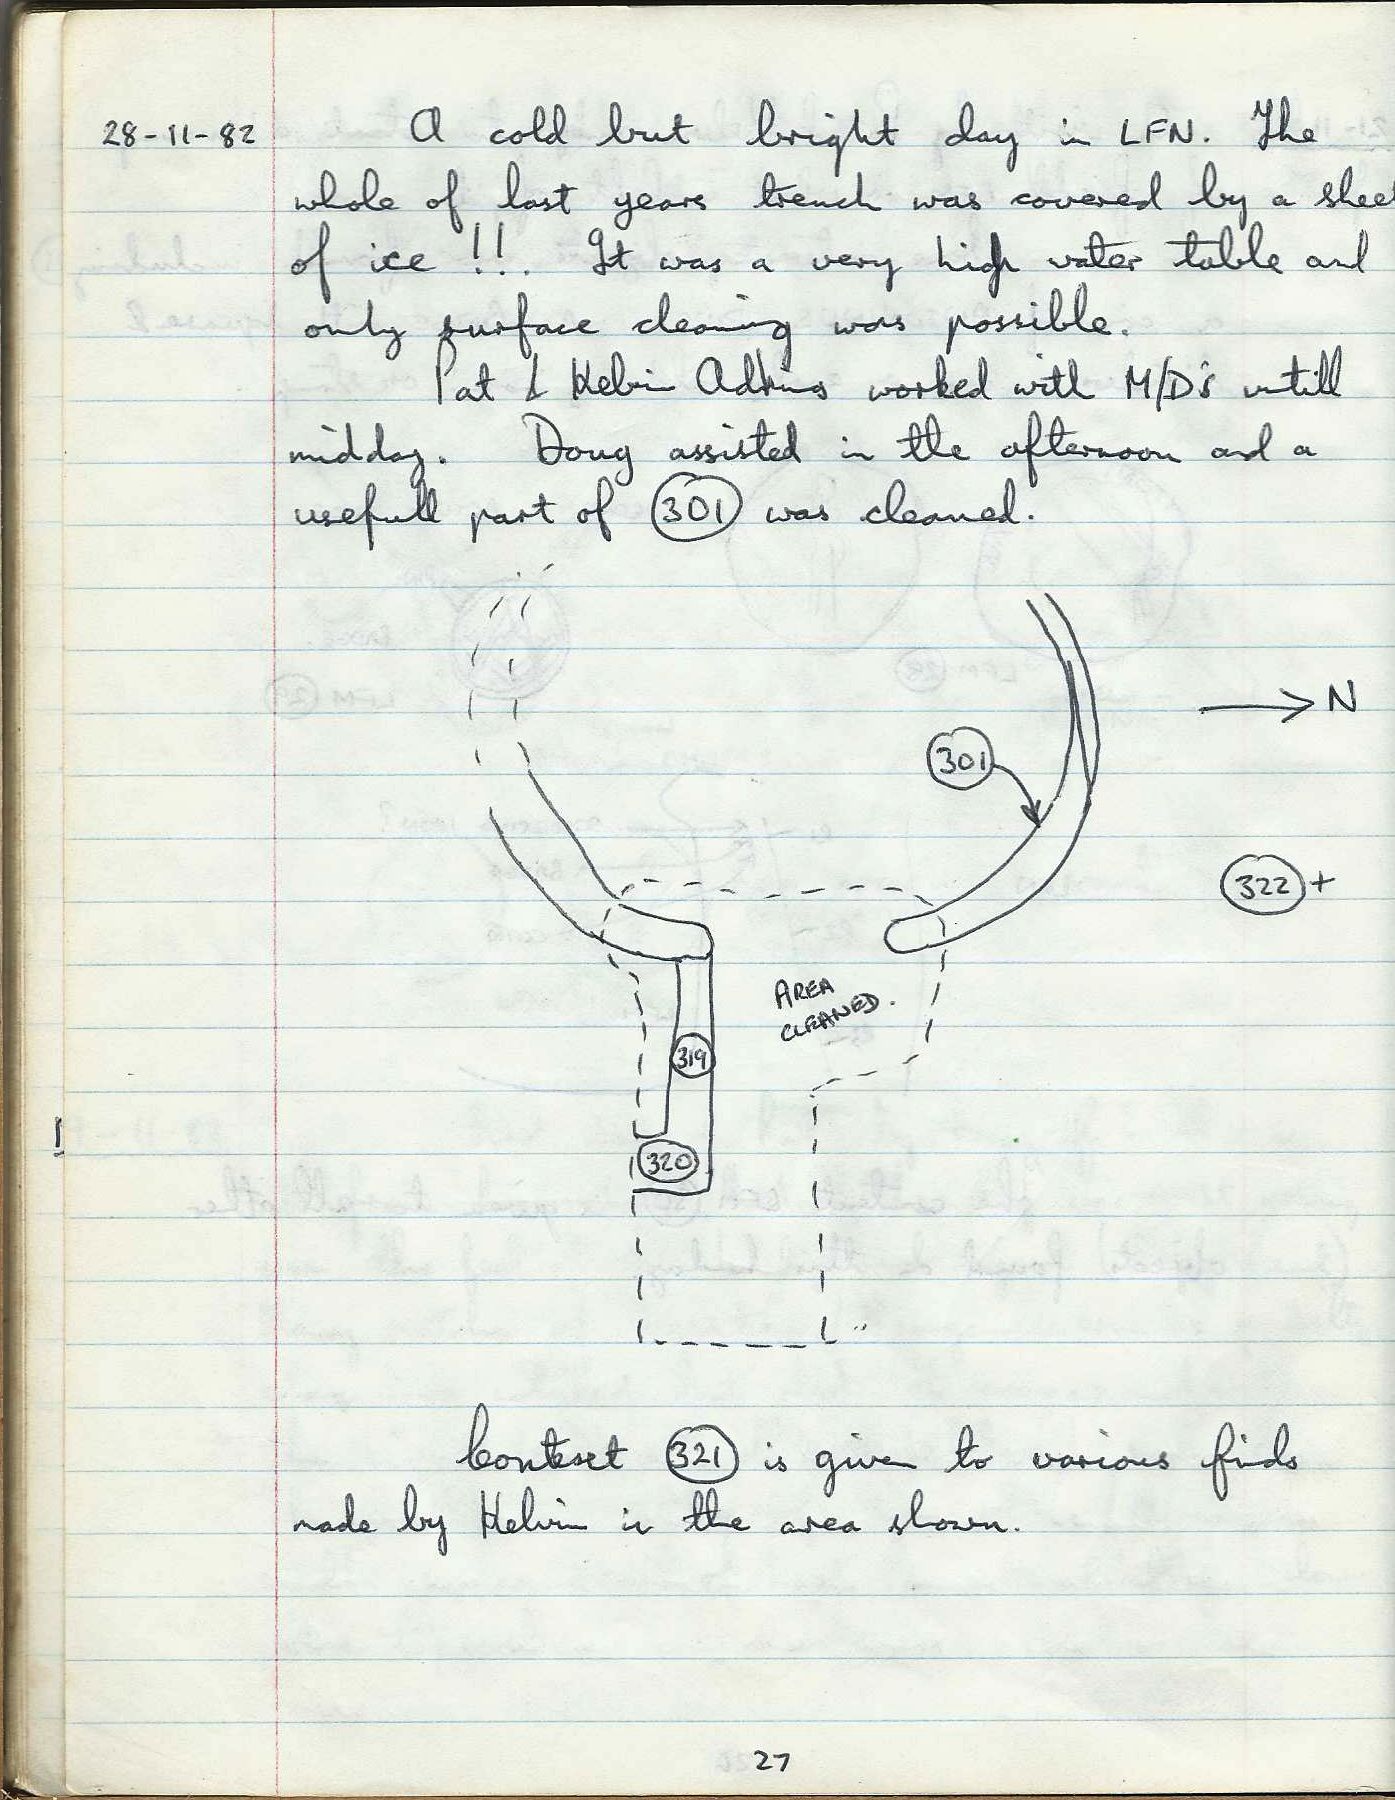 28-11-82 A cold but bright day in LFN. The
whole of last years trench was covered by a sheet
of ice !!!. It was a very high water table and
only surface cleaning was possible.
Pat & Kelvin Adkins worked with M/D's untill
midday. Doug assisted in the afternoon and a
usefull part of 301 was cleaned.
N
301
322 +
AREA
CLEANED.
319
320
Context 321 is given to various finds
made by Kelvin in the area shown.
27